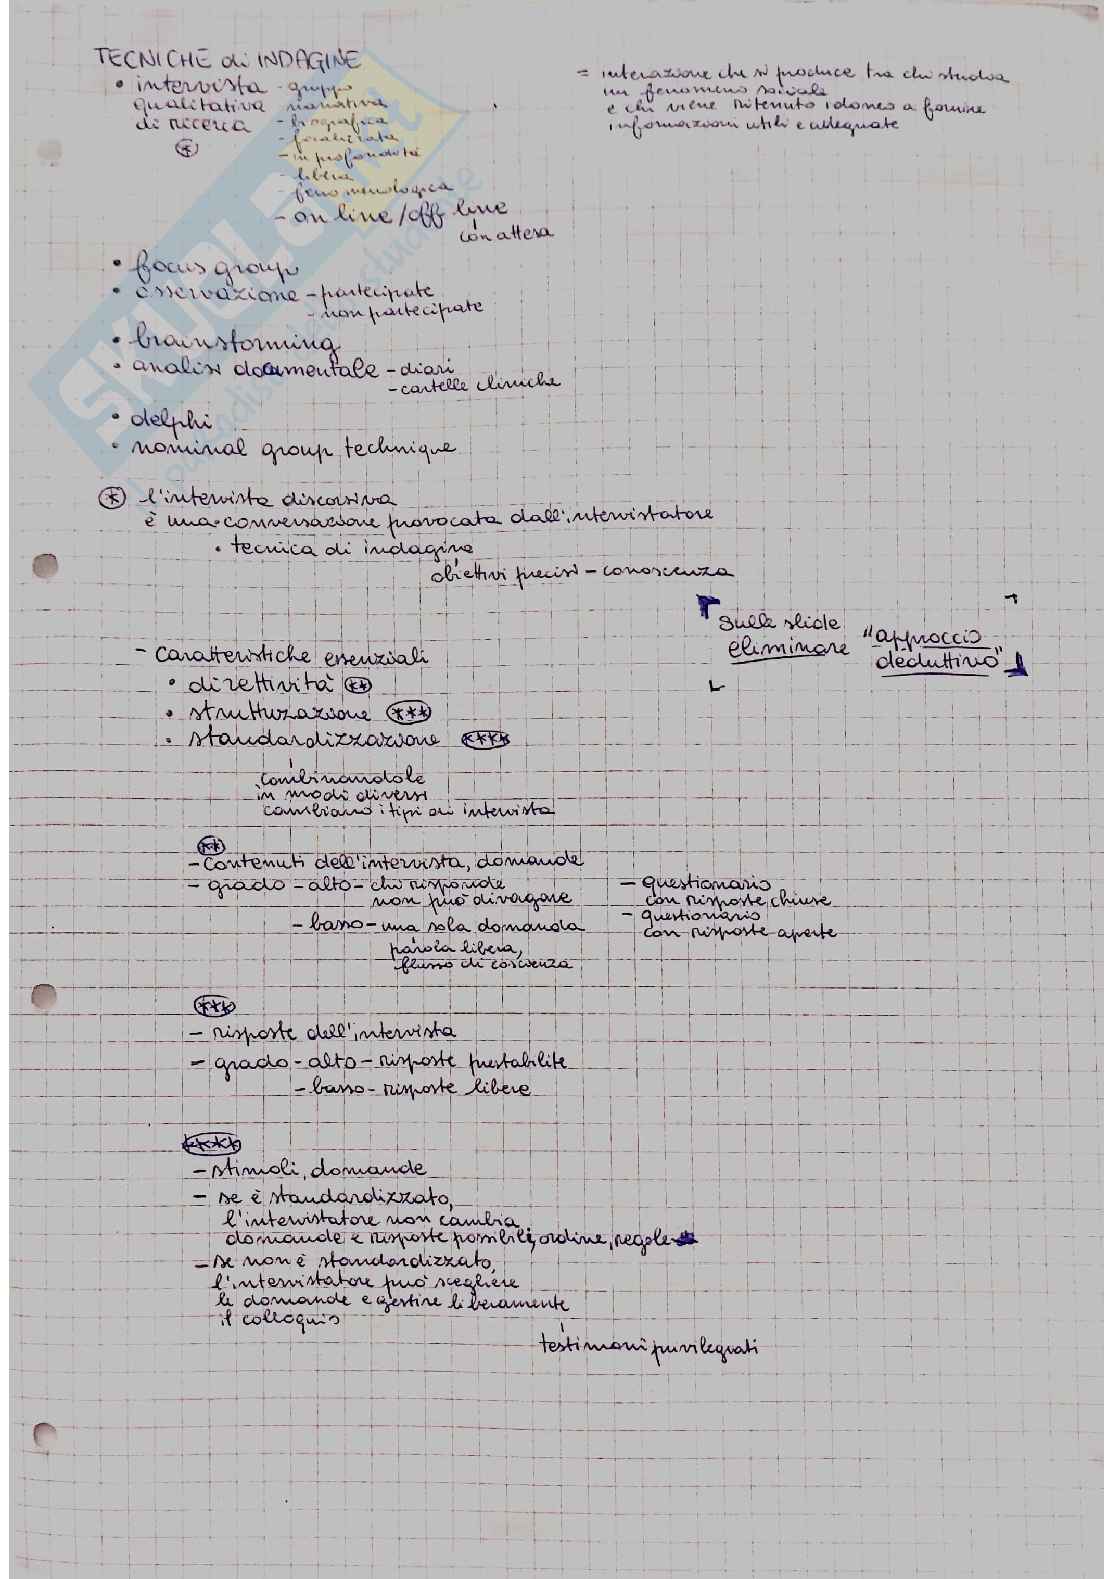 TECNICHE di INDAGINE
• intervista - gruppo
qualitativa - narrativa
di ricerca - biografica
⊛ - focalizzata
- in profondità
- libera
- fenomenologica
- on line / off line
con attesa
= interazione che si produce tra chi studia
un fenomeno sociale
e chi viene ritenuto idoneo a fornire
informazioni utili e adeguate
• focus group
• osservazione - partecipate
- non partecipate
• brainstorming
• analisi documentale - diari
- cartelle cliniche
• delphi
• nominal group technique
⊛ l'intervista discorsiva
è una conversazione provocata dall'intervistatore
• tecnica di indagine
obiettivi precisi - conoscenza
sulle slide
eliminare "approccio
deduttivo"
- caratteristiche essenziali
• direttività (**)
• strutturazione (***)
• standardizzazione (****)
combinandole
in modi diversi
cambiano i tipi di intervista
(**)
- contenuti dell'intervista, domande
- grado - alto - chi risponde
non può divagare
- basso - una sola domanda
parola libera,
flusso di coscienza
- questionario
con risposte chiuse
- questionario
con risposte aperte
(***)
- risposte dell'intervista
- grado - alto - risposte prestabilite
- basso - risposte libere
(****)
- stimoli, domande
- se è standardizzato,
l'intervistatore non cambia
domande e risposte possibili, ordine, regole
- se non è standardizzato,
l'intervistatore può scegliere
le domande e gestire liberamente
il colloquio
testimoni privilegiati
SKUOLA.net